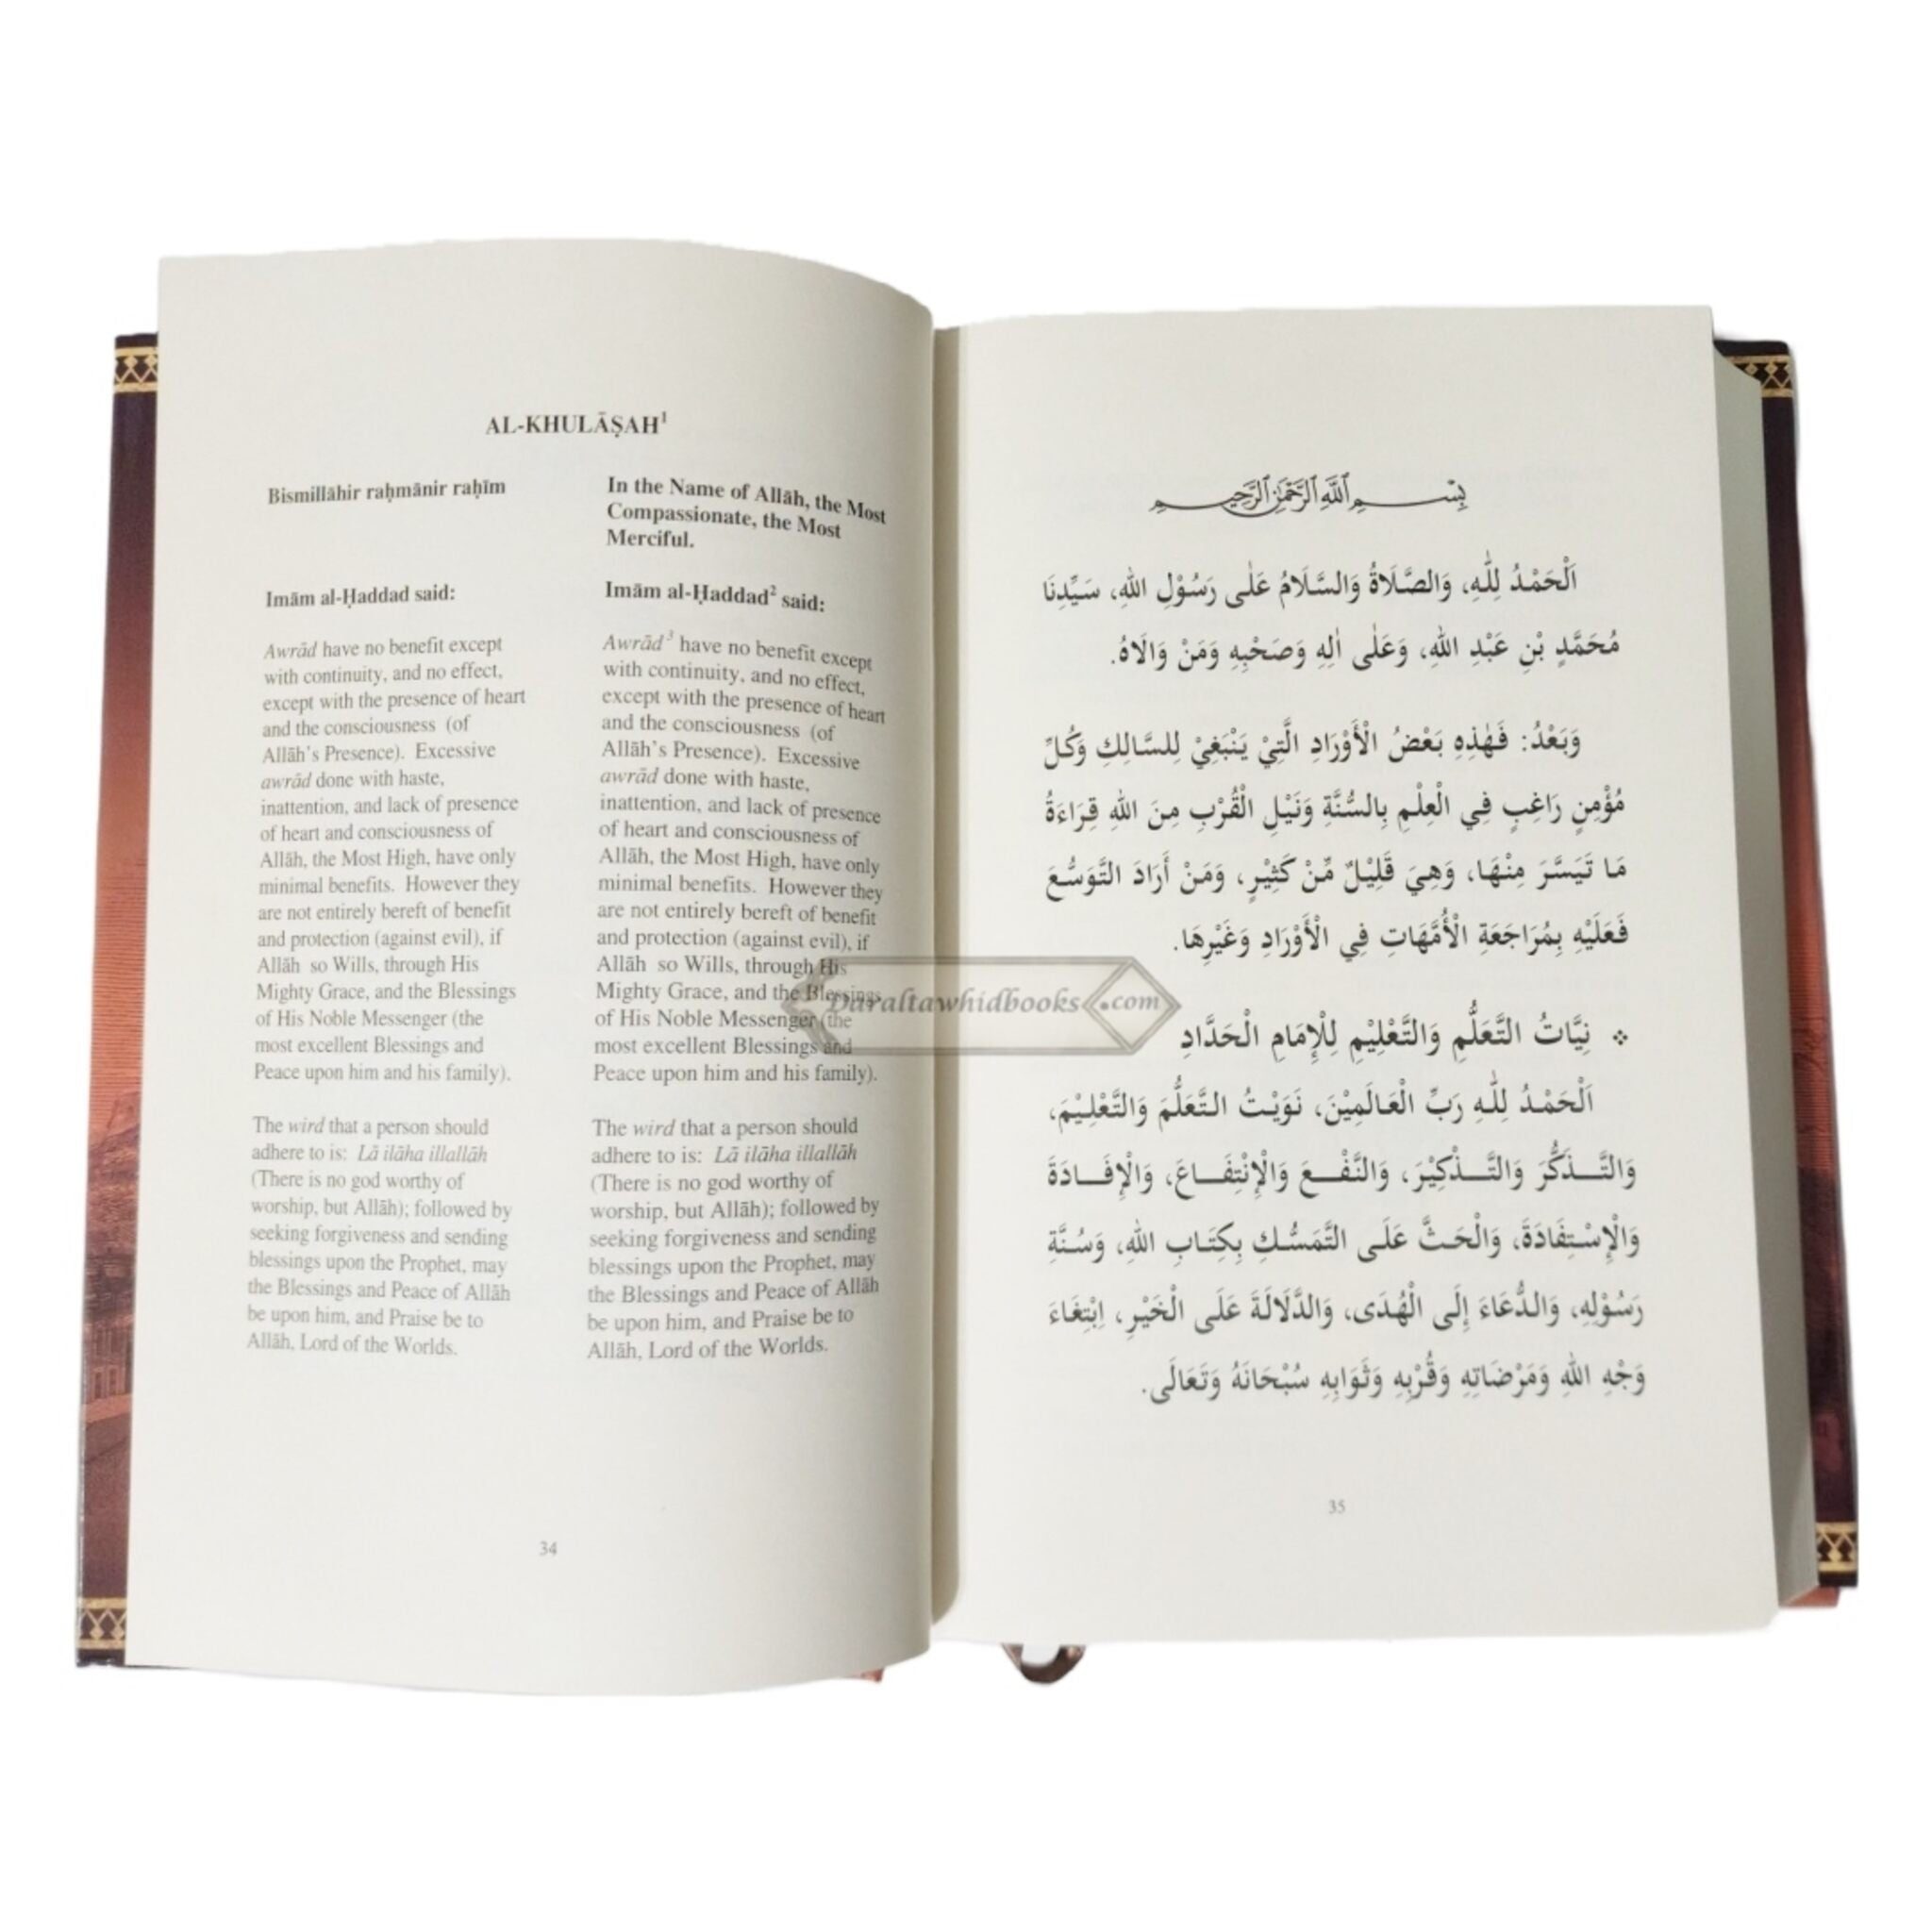 AL-KHULĀṢAH¹
Bismillāhir raḥmānir raḥīm
Imām al-Ḥaddad said:
Awrād have no benefit except
with continuity, and no effect,
except with the presence of heart
and the consciousness (of
Allāh's Presence). Excessive
awrād done with haste,
inattention, and lack of presence
of heart and consciousness of
Allāh, the Most High, have only
minimal benefits. However they
are not entirely bereft of benefit
and protection (against evil), if
Allāh so Wills, through His
Mighty Grace, and the Blessings
of His Noble Messenger (the
most excellent Blessings and
Peace upon him and his family).
The wird that a person should
adhere to is: Lā ilāha illallāh
(There is no god worthy of
worship, but Allāh); followed by
seeking forgiveness and sending
blessings upon the Prophet, may
the Blessings and Peace of Allāh
be upon him, and Praise be to
Allāh, Lord of the Worlds.
In the Name of Allāh, the Most
Compassionate, the Most
Merciful.
Imām al-Ḥaddad² said:
Awrād³ have no benefit except
with continuity, and no effect,
except with the presence of heart
and the consciousness (of
Allāh's Presence). Excessive
awrād done with haste,
inattention, and lack of presence
of heart and consciousness of
Allāh, the Most High, have only
minimal benefits. However they
are not entirely bereft of benefit
and protection (against evil), if
Allāh so Wills, through His
Mighty Grace, and the Blessings
of His Noble Messenger (the
most excellent Blessings and
Peace upon him and his family).
The wird that a person should
adhere to is: Lā ilāha illallāh
(There is no god worthy of
worship, but Allāh); followed by
seeking forgiveness and sending
blessings upon the Prophet, may
the Blessings and Peace of Allāh
be upon him, and Praise be to
Allāh, Lord of the Worlds.
34
بِسْمِ اللَّهِ الرَّحْمَٰنِ الرَّحِيمِ
اَلْحَمْدُ لِلّٰهِ، وَالصَّلَاةُ وَالسَّلَامُ عَلٰى رَسُوْلِ اللهِ، سَيِّدِنَا
مُحَمَّدٍ بْنِ عَبْدِ اللهِ، وَعَلٰى اٰلِهِ وَصَحْبِهِ وَمَنْ وَالَاهُ.
وَبَعْدُ: فَهٰذِهِ بَعْضُ الْأَوْرَادِ الَّتِيْ يَنْبَغِيْ لِلسَّالِكِ وَكُلِّ
مُؤْمِنٍ رَاغِبٍ فِي الْعِلْمِ بِالسُّنَّةِ وَنَيْلِ الْقُرْبِ مِنَ اللهِ قِرَاءَةُ
مَا تَيَسَّرَ مِنْهَا، وَهِيَ قَلِيْلٌ مِّنْ كَثِيْرٍ، وَمَنْ أَرَادَ التَّوَسُّعَ
فَعَلَيْهِ بِمُرَاجَعَةِ الْأُمَّهَاتِ فِي الْأَوْرَادِ وَغَيْرِهَا.
نِيَّاتُ التَّعَلُّمِ وَالتَّعْلِيْمِ لِلْإِمَامِ الْحَدَّادِ
اَلْحَمْدُ لِلّٰهِ رَبِّ الْعَالَمِيْنَ، نَوَيْتُ التَّعَلُّمَ وَالتَّعْلِيْمَ،
وَالتَّذَكُّرَ وَالتَّذْكِيْرَ، وَالنَّفْعَ وَالْإِنْتِفَاعَ، وَالْإِفَادَةَ
وَالْإِسْتِفَادَةَ، وَالْحَثَّ عَلَى التَّمَسُّكِ بِكِتَابِ اللهِ، وَسُنَّةِ
رَسُوْلِهِ، وَالدُّعَاءَ إِلَى الْهُدَى، وَالدَّلَالَةَ عَلَى الْخَيْرِ، اِبْتِغَاءَ
وَجْهِ اللهِ وَمَرْضَاتِهِ وَقُرْبِهِ وَثَوَابِهِ سُبْحَانَهُ وَتَعَالَى.
35
Daraltawhidbooks.com